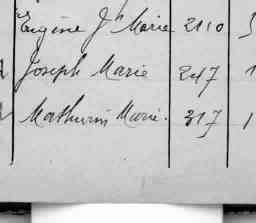 Eugène Jn Marie 2110
Joseph Marie 247 1
Mathurin Marie. 317 1